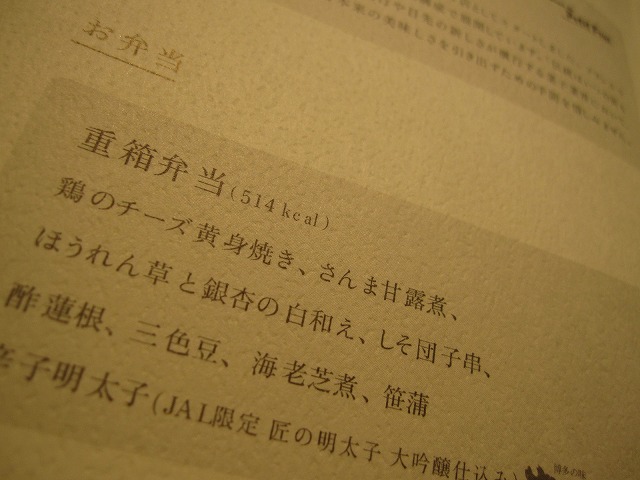 お弁当
重箱弁当(514kcal)
鶏のチーズ黄身焼き、さんま甘露煮、
ほうれん草と銀杏の白和え、しそ団子串、
酢蓮根、三色豆、海老芝煮、笹蒲
辛子明太子(JAL限定 匠の明太子 大吟醸仕込み)
博多の味